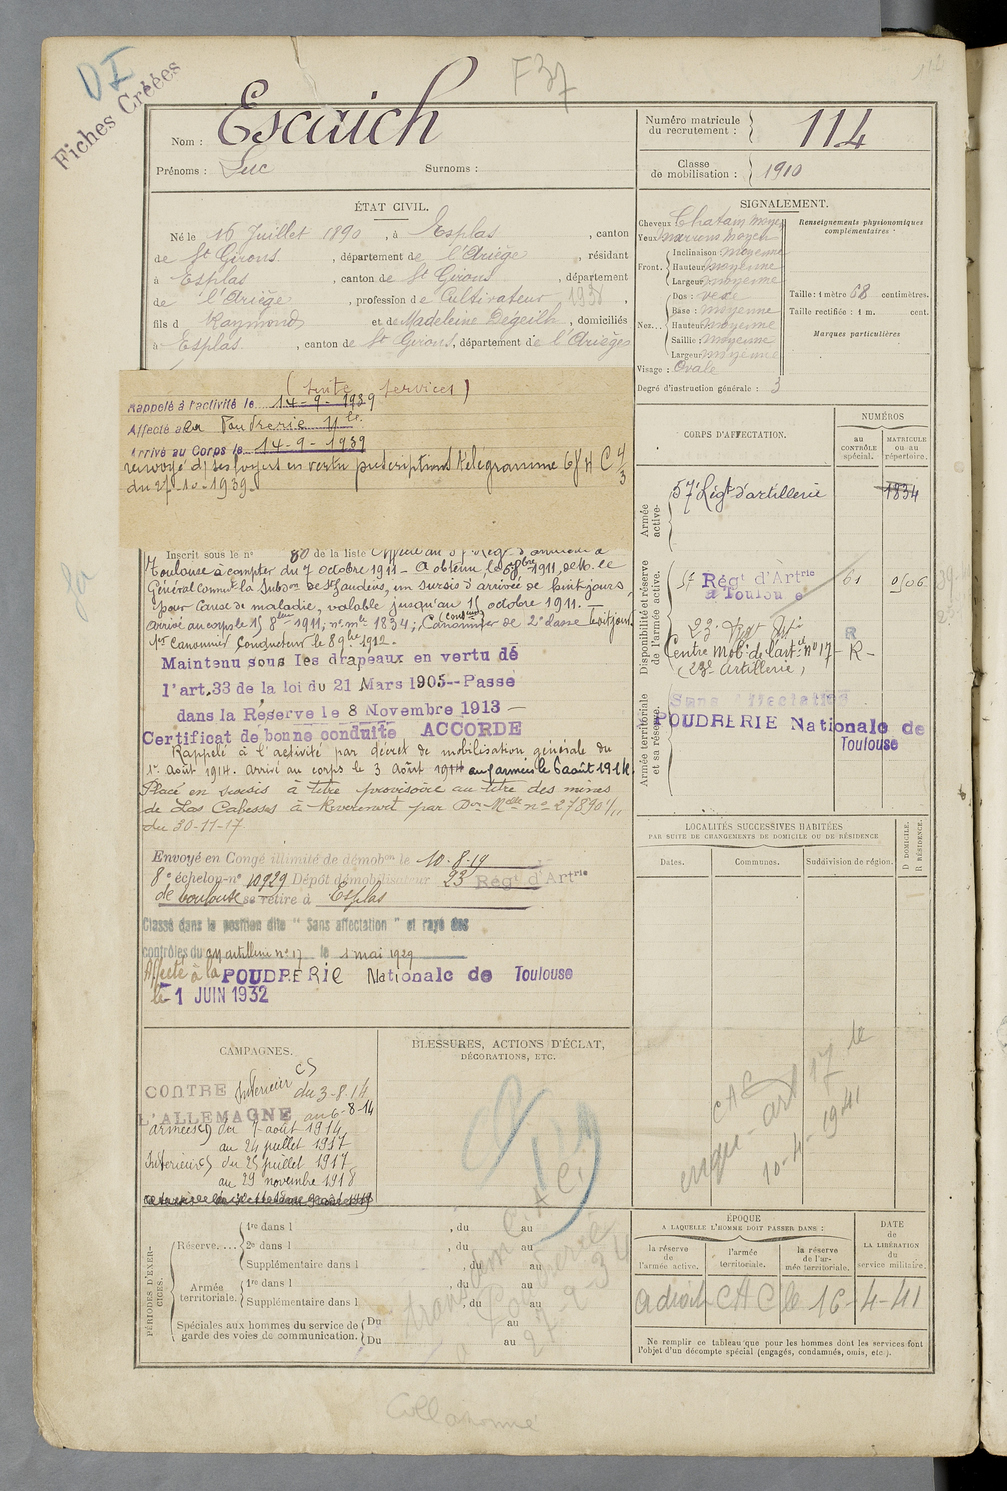 D I
Fiches Créées
F37
Nom : Escaich
Prénoms : Luc Surnoms :
Numéro matricule du recrutement : 114
Classe de mobilisation : 1910
ÉTAT CIVIL.
Né le 16 Juillet 1890, à Esplas, canton
de St Girons, département de l'Ariège, résidant
à Esplas, canton de St Girons, département
de l'Ariège, profession de Cultivateur
fils de Raymond et de Madeleine Dégeilh, domiciliés
à Esplas, canton de St Girons, département de l'Ariège
SIGNALEMENT.
Cheveux Chatain moyen
Yeux marrons moyen
Front. Inclinaison moyenne
Hauteur moyenne
Largeur moyenne
Nez... Dos : vexe
Base : moyenne
Hauteur moyenne
Saillie : moyenne
Largeur moyenne
Visage : Ovale
Degré d'instruction générale : 3
Renseignements physionomiques complémentaires
Taille : 1 mètre 68 centimètres.
Taille rectifiée : 1 m. cent.
Marques particulières
(suite services)
Rappelé à l'activité le 14-9-1939
Affecté à la Poudrerie Nle
Arrivé au Corps le 14-9-1939
renvoyé ds ses foyers en vertu prescriptions télégramme
du 27-10-1939.
Inscrit sous le n° 80 de la liste
Toulouse à compter du 7 octobre 1911 - A obtenu, le 1911, de M. le
Général Commt la Subdon de St Gaudens, un sursis d'arrivée de huit jours
pour cause de maladie, valable jusqu'au 15 octobre 1911.
Arrivé au corps le 15 8bre 1911; n° mle 1834; Canonnier de 2e classe
1er Canonnier Conducteur le 8 9bre 1912.
Maintenu sous les drapeaux en vertu de
l'art.33 de la loi du 21 Mars 1905--Passé
dans la Réserve le 8 Novembre 1913 -
Certificat de bonne conduite ACCORDÉ
Rappelé à l'activité par décret de mobilisation générale du
1er Août 1914. Arrivé au corps le 3 Août 1914 aux armées le 6 août 1914.
Placé en sursis à titre provisoire au titre des mines
de Las Cabesses à Rivèrenert par Don Melle n° 27890
du 30-11-17
Envoyé en Congé illimité de démobon le 10-8-19
8e échelon n° 10929 Dépôt démobilisateur 23 Régt d'Artrie
de Toulouse se retire à Esplas
Classé dans la position dite " Sans affectation " et rayé des
contrôles du artillerie n° 17 le 1 mai 1929
Affecté à la POUDRERIE Nationale de Toulouse
le 1 JUIN 1932
CORPS D'AFFECTATION.
NUMÉROS
au CONTRÔLE spécial.
MATRICULE ou au répertoire.
Armée active.
57e Régt d'artillerie 1834
Disponibilité et réserve de l'armée active.
57 Régt d'Artrie à Toulouse 61
23e Régt Artie
Centre Mobn de l'artie n° 17 - R -
(23e artillerie)
R
Armée territoriale et sa réserve.
Sans Affectation
POUDRERIE Nationale de
Toulouse
LOCALITÉS SUCCESSIVES HABITÉES
PAR SUITE DE CHANGEMENTS DE DOMICILE OU DE RÉSIDENCE
Dates. Communes. Subdivision de région. D DOMICILE. R RÉSIDENCE.
CAMPAGNES.
CONTRE L'ALLEMAGNE
Intérieur CS du 3-8-14
au 6-8-14
armées du 7 août 1914
au 24 juillet 1917
Intérieur du 25 juillet 1917
au 29 novembre 1918
BLESSURES, ACTIONS D'ÉCLAT,
DÉCORATIONS, ETC.
CAC art 17 le
10-4-1941
PÉRIODES D'EXERCICES.
Réserve.... 1re dans l , du au
2e dans l , du au
Supplémentaire dans l , du au
Armée territoriale. 1re dans l , du au
Supplémentaire dans l , du au
Spéciales aux hommes du service de garde des voies de communication. Du au
Du au
ÉPOQUE
A LAQUELLE L'HOMME DOIT PASSER DANS :
la réserve de l'armée active.
l'armée territoriale.
la réserve de l'armée territoriale.
DATE de LA LIBÉRATION du service militaire.
a droit CAC le 16-4-41
Ne remplir ce tableau que pour les hommes dont les services font
l'objet d'un décompte spécial (engagés, condamnés, omis, etc.).